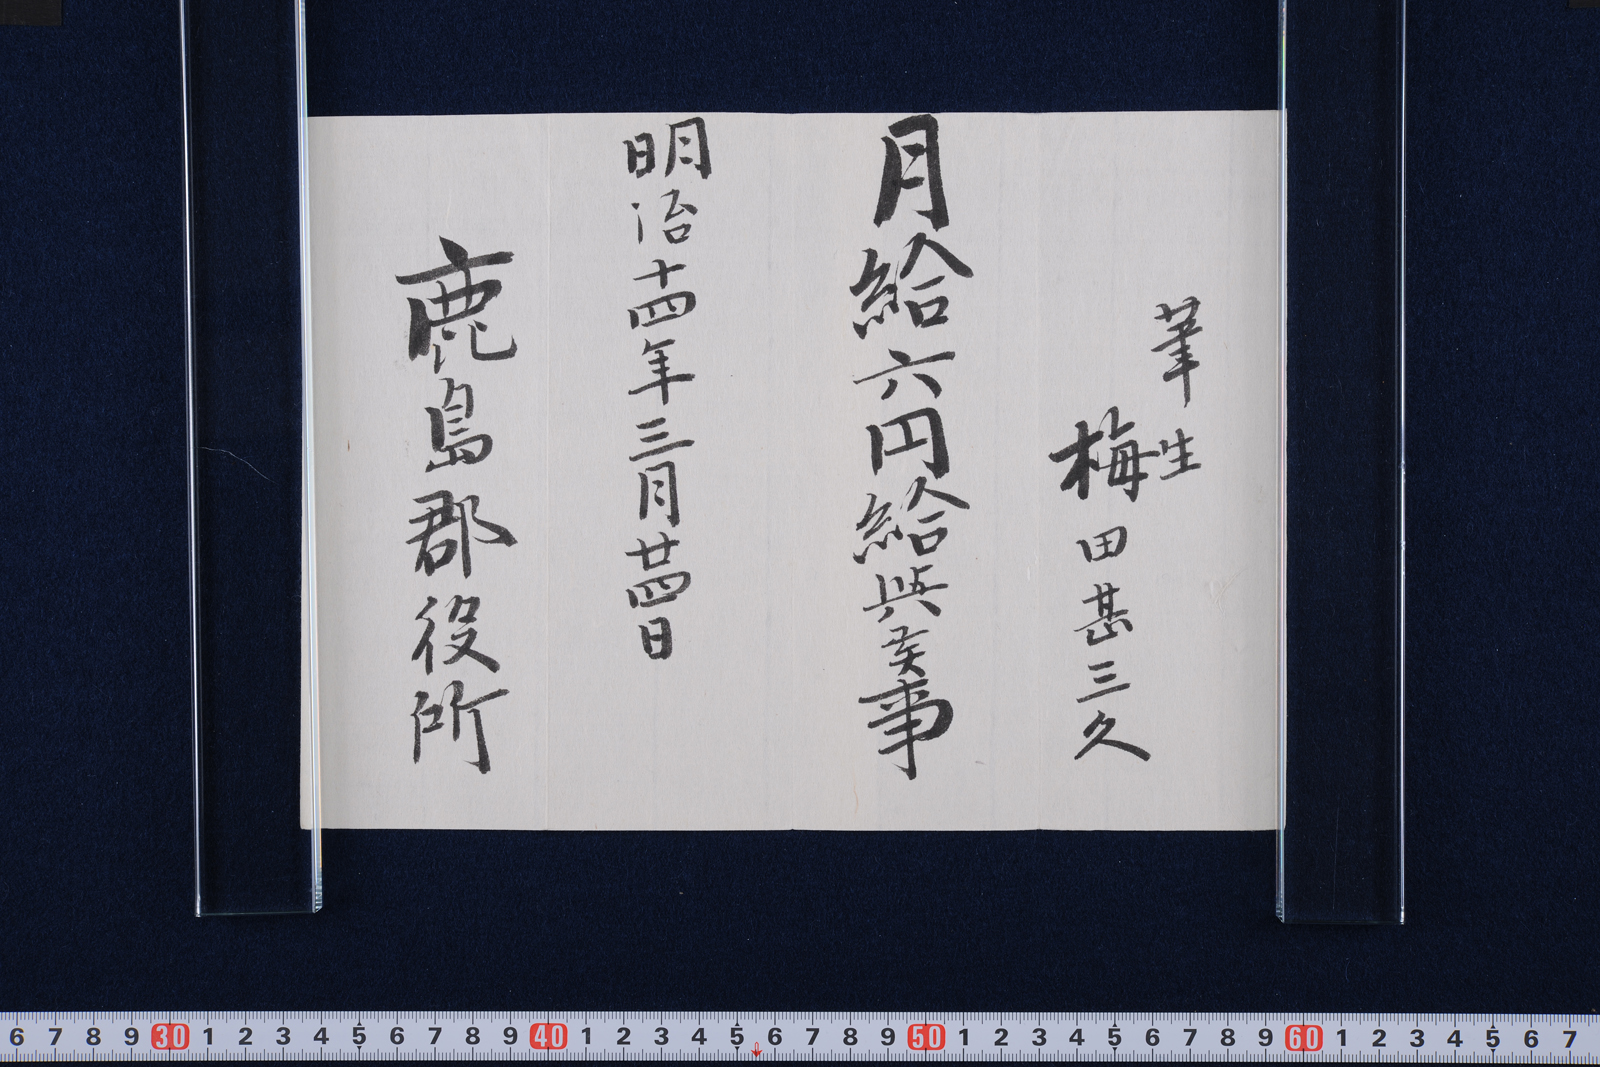 筆生
梅田甚三久
月給六円給與候事
明治十四年三月廿四日
鹿島郡役所
6 7 8 9 30 1 2 3 4 5 6 7 8 9 40 1 2 3 4 5 6 7 8 9 50 1 2 3 4 5 6 7 8 9 60 1 2 3 4 5 6 7